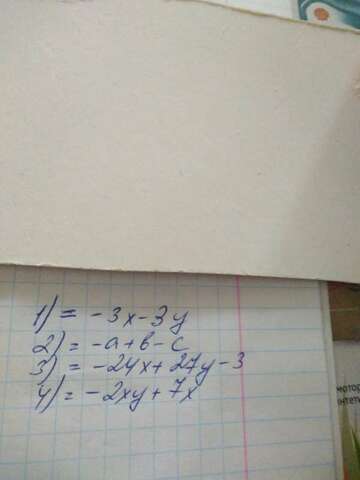 1) = -3x-3y
2) = -a+b-c
3) = -24x+27y-3
4) = -2xy+7x
мотор